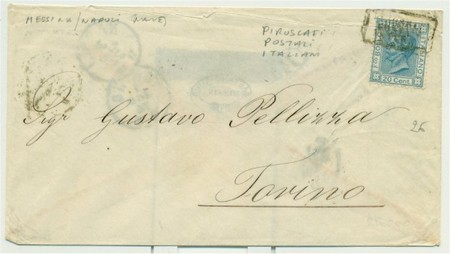 MESSINA/NAPOLI (NAVE)
PIROSCAFI
POSTALI
ITALIANI
20 Cent.
26
Sigr Gustavo Pellizza
Torino